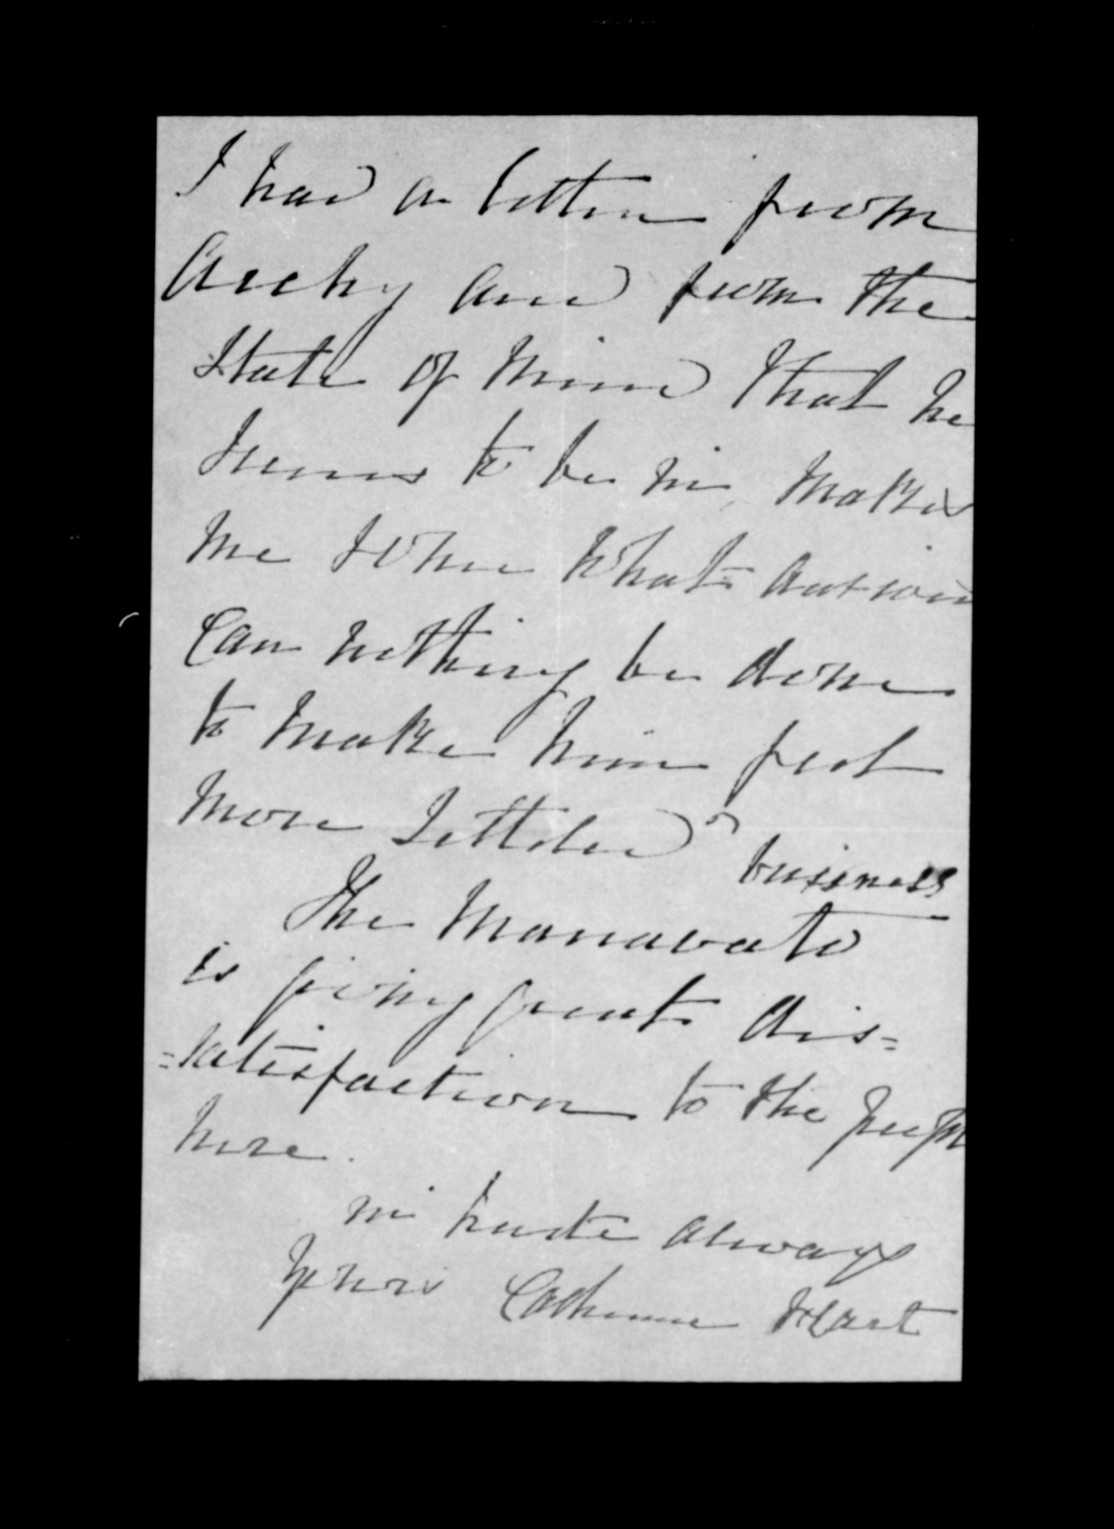 I had a letter from
Archy and from the
State of mind that he
seems to be in, makes
me some what anxious
Can nothing be done
to make him feel
more settled?
business
The Manawatu
is giving great dis=
=satisfaction to the people
here.
in haste always
yours Catherine Hart